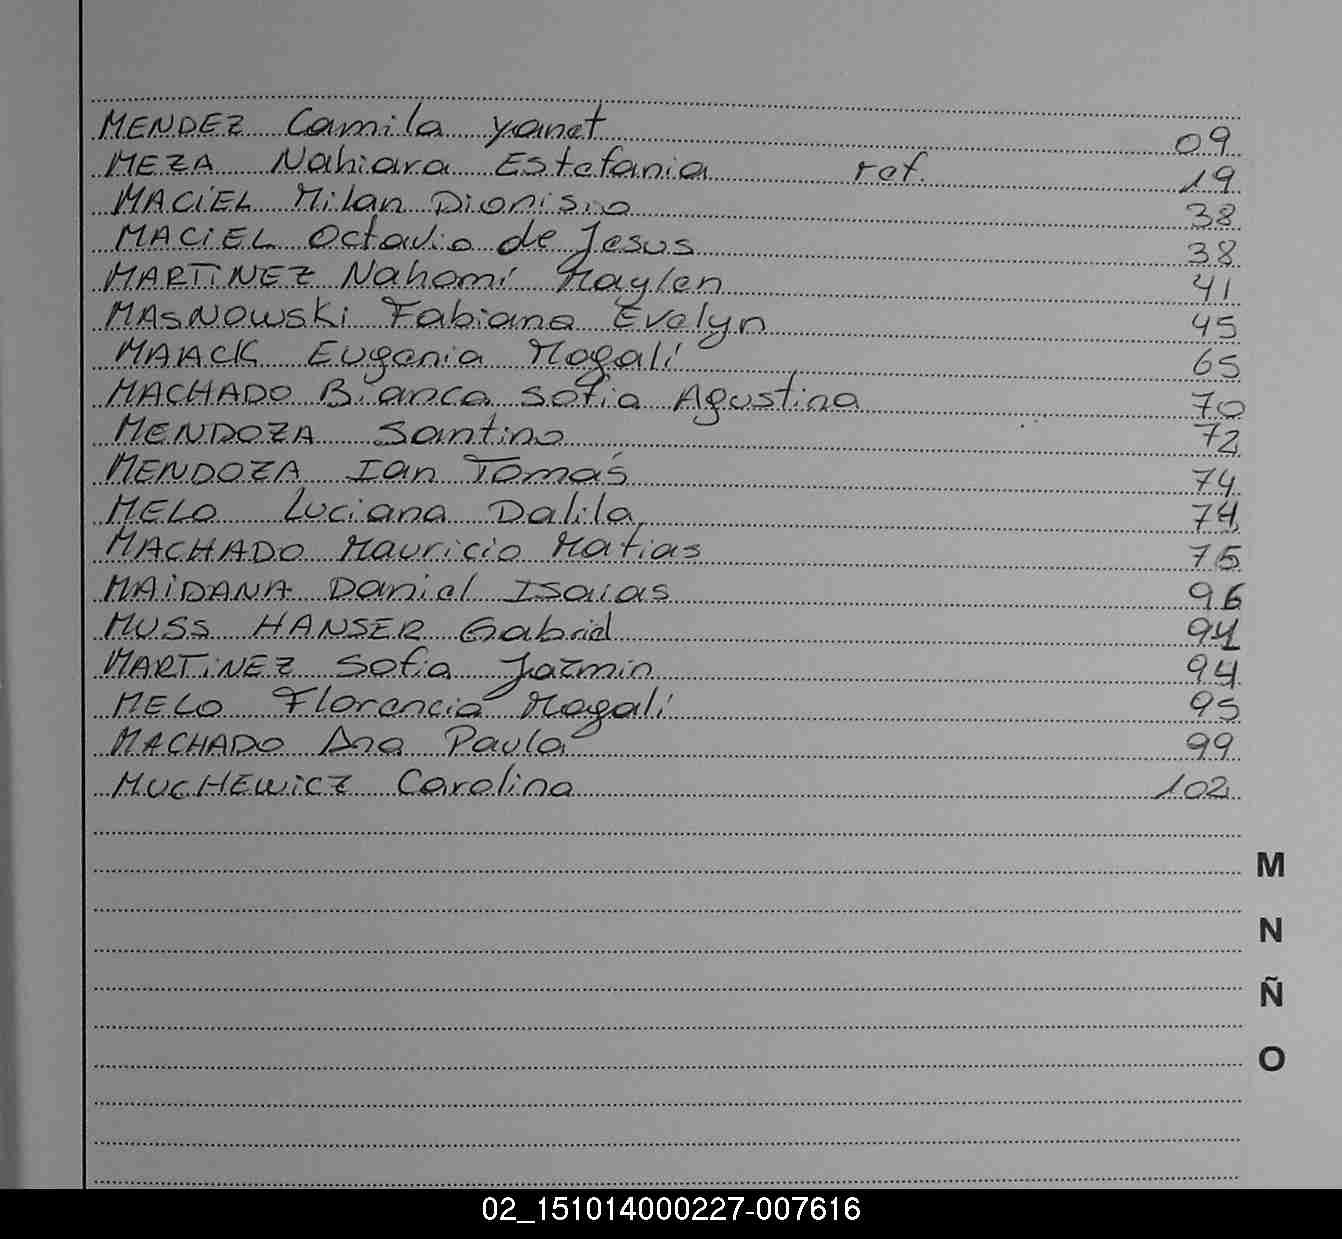 MENDEZ Camila yanet 09
MEZA Nahiara Estefania ref. 19
MACIEL Milan Dionisio 38
MACIEL Octavio de Jesus 38
MARTINEZ Nahomí Maylen 41
MASNOWSKI Fabiana Evelyn 45
MAIACK Eugenia Magalí 65
MACHADO Bianca Sofia Agustina 70
MENDOZA Santino 72
MENDOZA Ian Tomás 74
MELO Luciana Dalila 74
MACHADO Mauricio Matias 75
MAIDANA Daniel Isaias 96
MUSS HANSER Gabriel 94
MARTINEZ Sofia Jazmin 94
MELO Florencia Magalí 95
MACHADO Ana Paula 99
MUCHEWICZ Carolina 102
M
N
Ñ
O
02_151014000227-007616